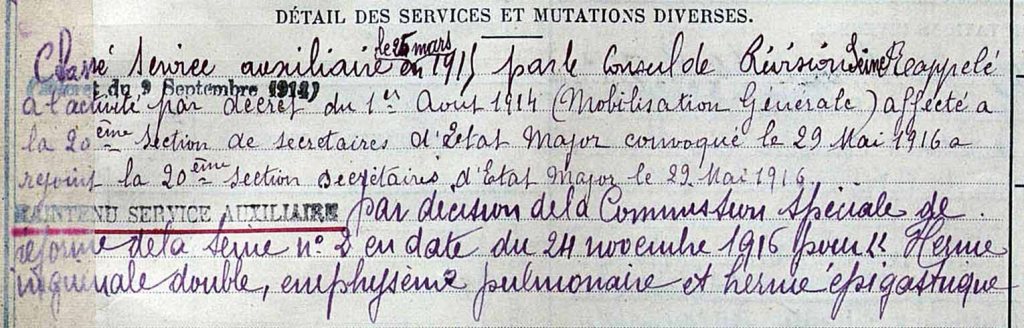 DÉTAIL DES SERVICES ET MUTATIONS DIVERSES.
le 25 mars
Classé service auxiliaire en 1915 par le Conseil de Révision Seine Reappelé
du 9 Septembre 1914)
à l'activité par decret du 1er Aout 1914 (Mobilisation Générale) affecté a
la 20ème Section de secretaires d'Etat Major convoqué le 29 Mai 1916 a
rejoint la 20ème Section secrétaires d'Etat Major le 29 Mai 1916.
MAINTENU SERVICE AUXILIAIRE par décision de la Commission spéciale de
réforme de la Seine n° 2 en date du 24 novembre 1916 pour Hernie
inguinale double, emphysème pulmonaire et hernie épigastrique